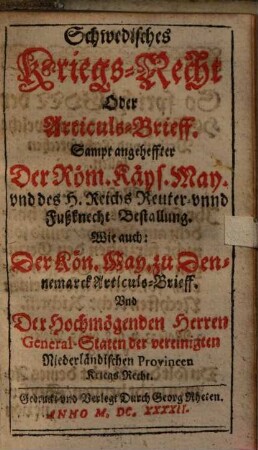 Schwedisches
Kriegs-Recht
Oder
Articuls-Brieff.
Sampt angeheffter
Der Röm. Käys. May.
vnd des H. Reichs Reuter-vnnd
Fußknecht Bestallung.
Wie auch:
Der Kön. May. zu Den-
nemarck Articuls-Brieff.
Vnd
Der Hochmögenden Herren
General-Staten der vereinigten
Niederländischen Provincen
Kriegs Recht.
Gedruckt vnd Verlegt Durch Georg Rheten.
ANNO M. DC. XXXXII.